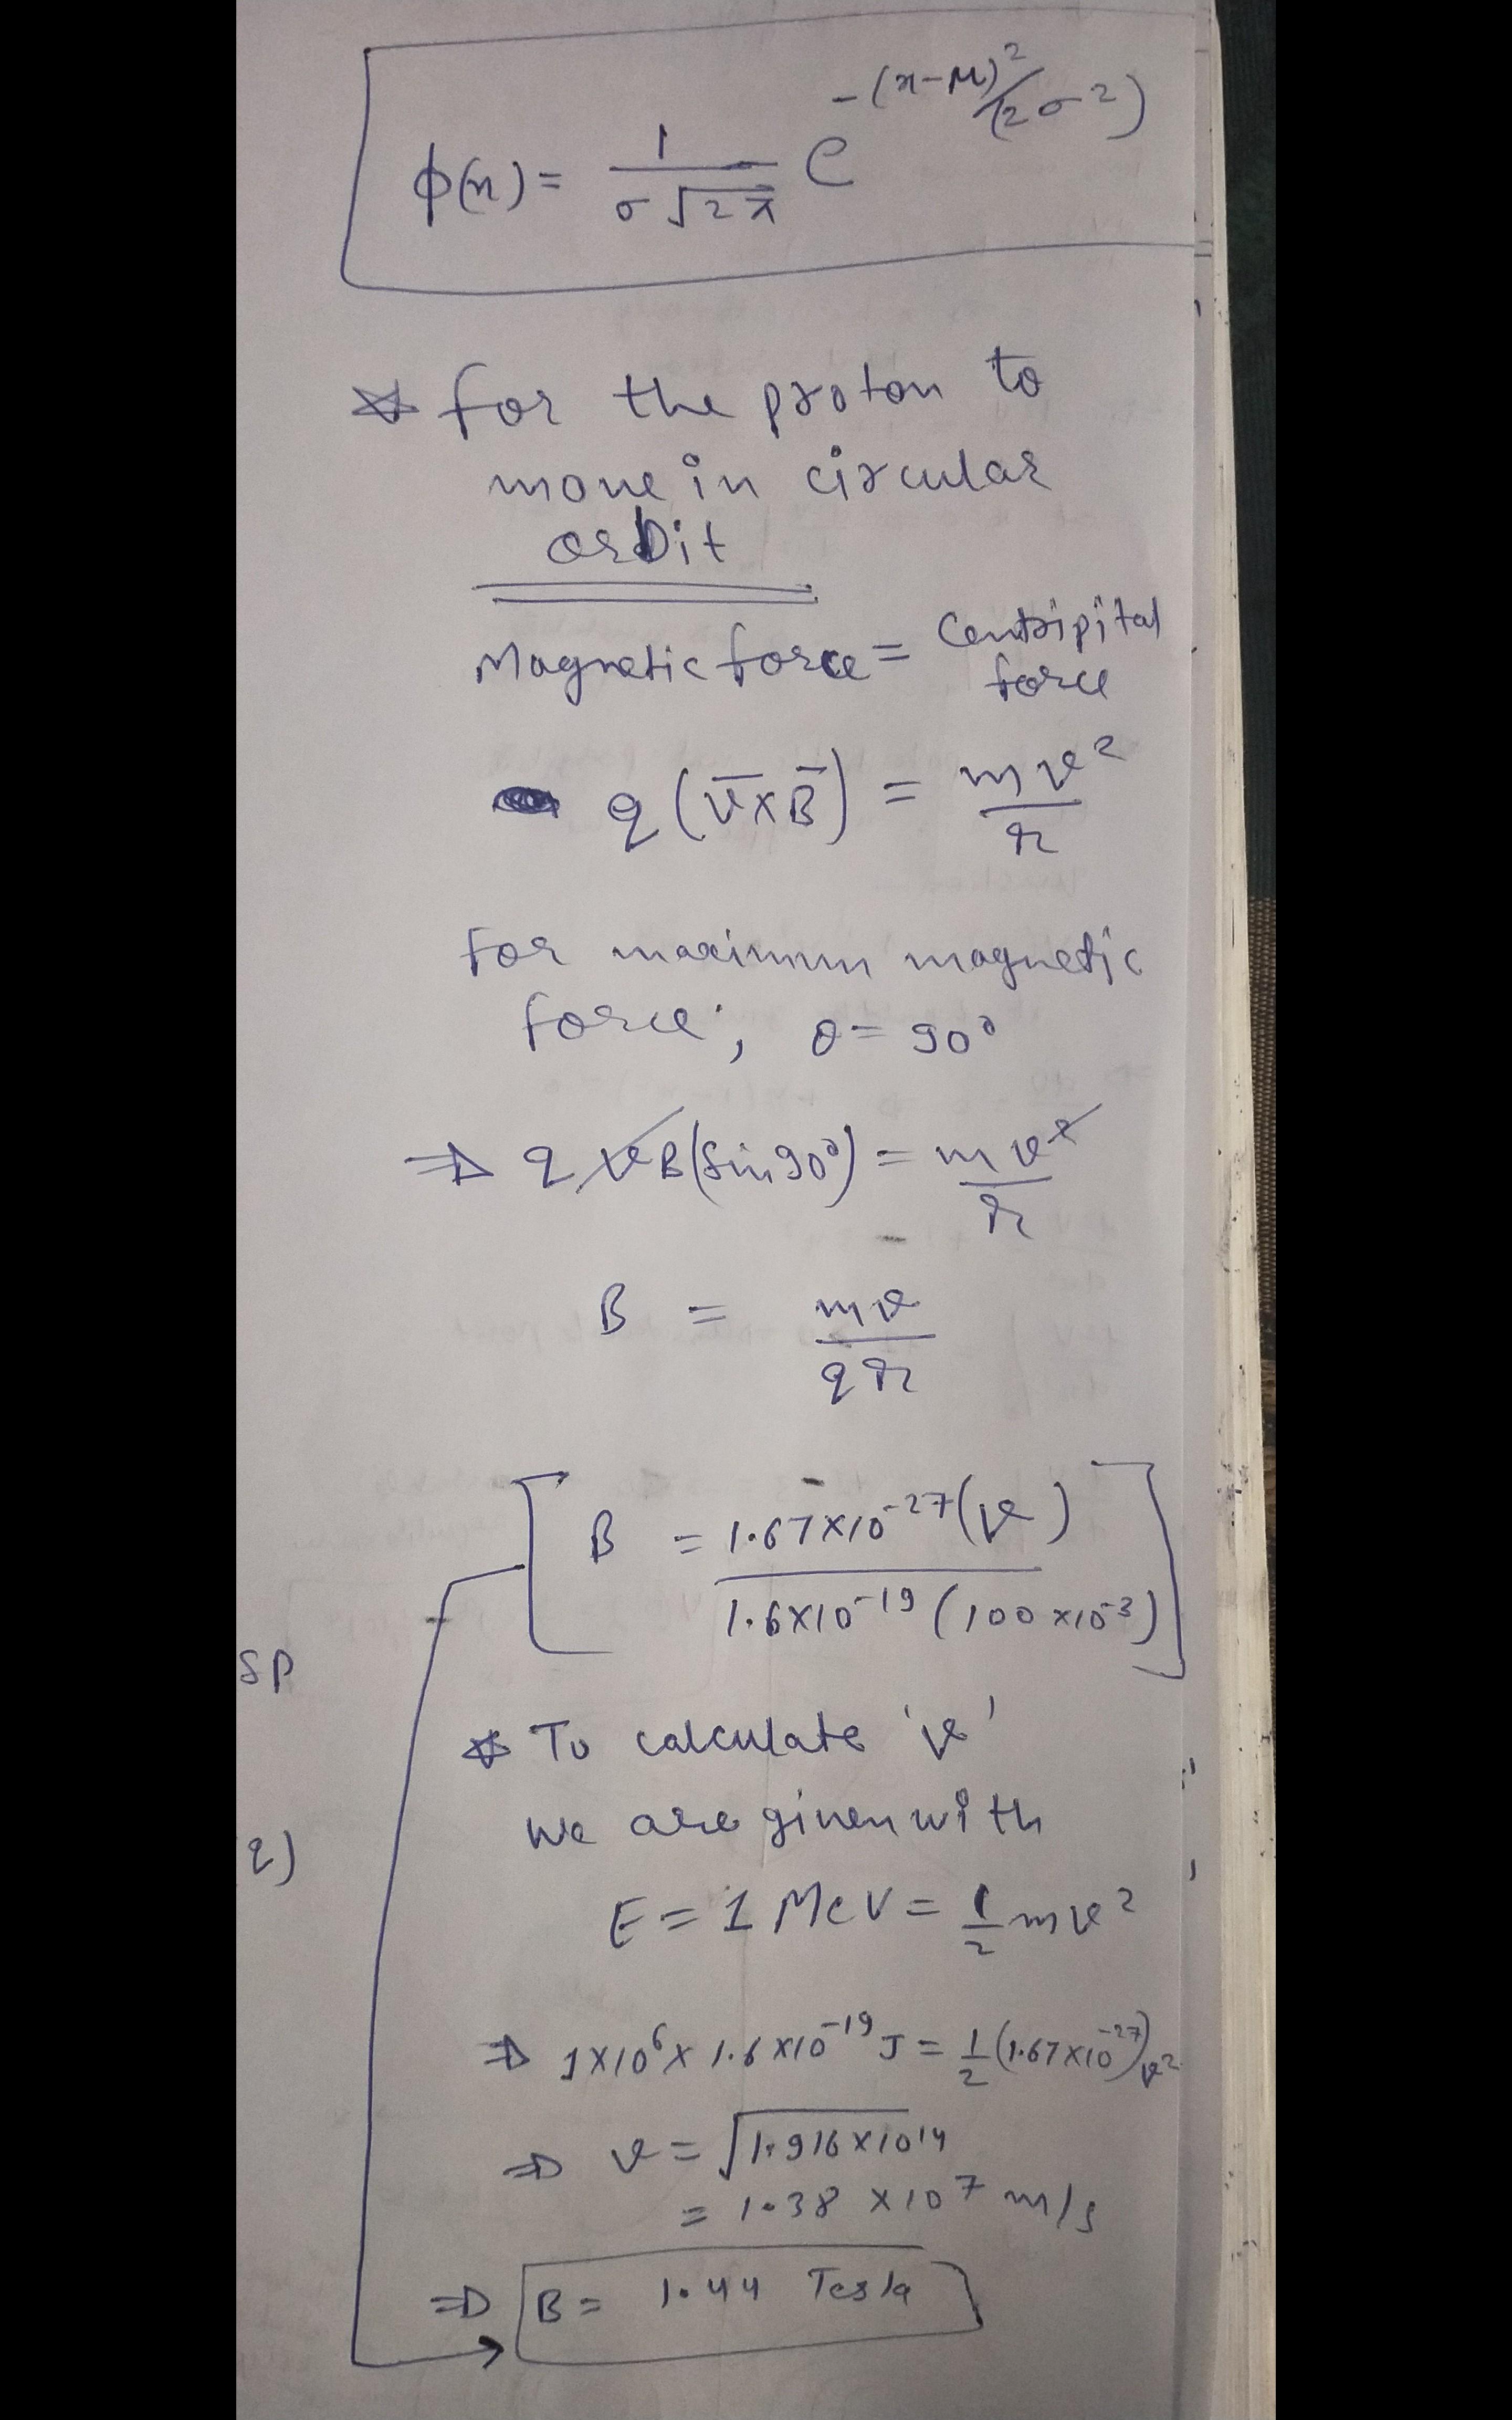 ϕ(x) = 1/(σ√2π) e^(-(x-μ)²/(2σ²))
* for the proton to
move in circular
orbit
Magnetic force = Centripital force
q (v̄ × B̄) = mv²/r
For maximum magnetic
force, θ = 90°
⇒ q v B (sin 90°) = mv²/r
B = mv/qr
B = 1.67×10⁻²⁷ (v) / 1.6×10⁻¹⁹ (100×10⁻³)
SP
* To calculate 'v'
We are given with
q)
E = 1 MeV = 1/2 mv²
⇒ 1×10⁶ × 1.6×10⁻¹⁹ J = 1/2 (1.67×10⁻²⁷) v²
⇒ v = √1.916×10¹⁴
= 1.38 × 10⁷ m/s
⇒ B = 1.44 Tesla